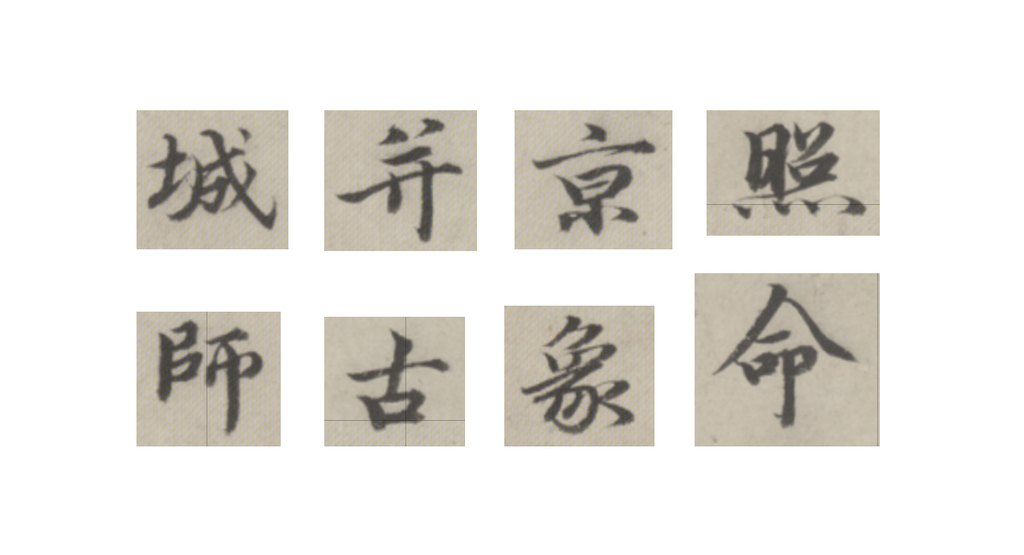 城 并 京 照
師 古 象 命